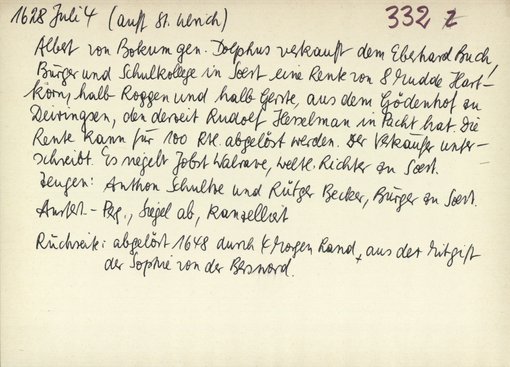 1628 Juli 4 (auff St. Ulrich) 332 z
Albert von Bokum gen. Dolphus verkauft dem Eberhard Buch,
Bürger und Schulkollege in Soest eine Rente von 8 Mudde Hart-
korn, halb Roggen und halb Gerste, aus dem Gödenhof zu
Deiringsen, den derzeit Rudolf Hesselman in Pacht hat. Die
Rente kann für 100 Rtl. abgelöst werden. Der Verkäufer unter-
schreibt. Es siegelt Jobst Walrave, weltl. Richter zu Soest.
Zeugen: Anthon Schultze und Rütger Becker, Bürger zu Soest.
Ausf. - Perg., Siegel ab,
Rückseite: abgelöst 1648 durch 4 Morgen Land, aus der Mitgift
der Sophie von der Bersword.